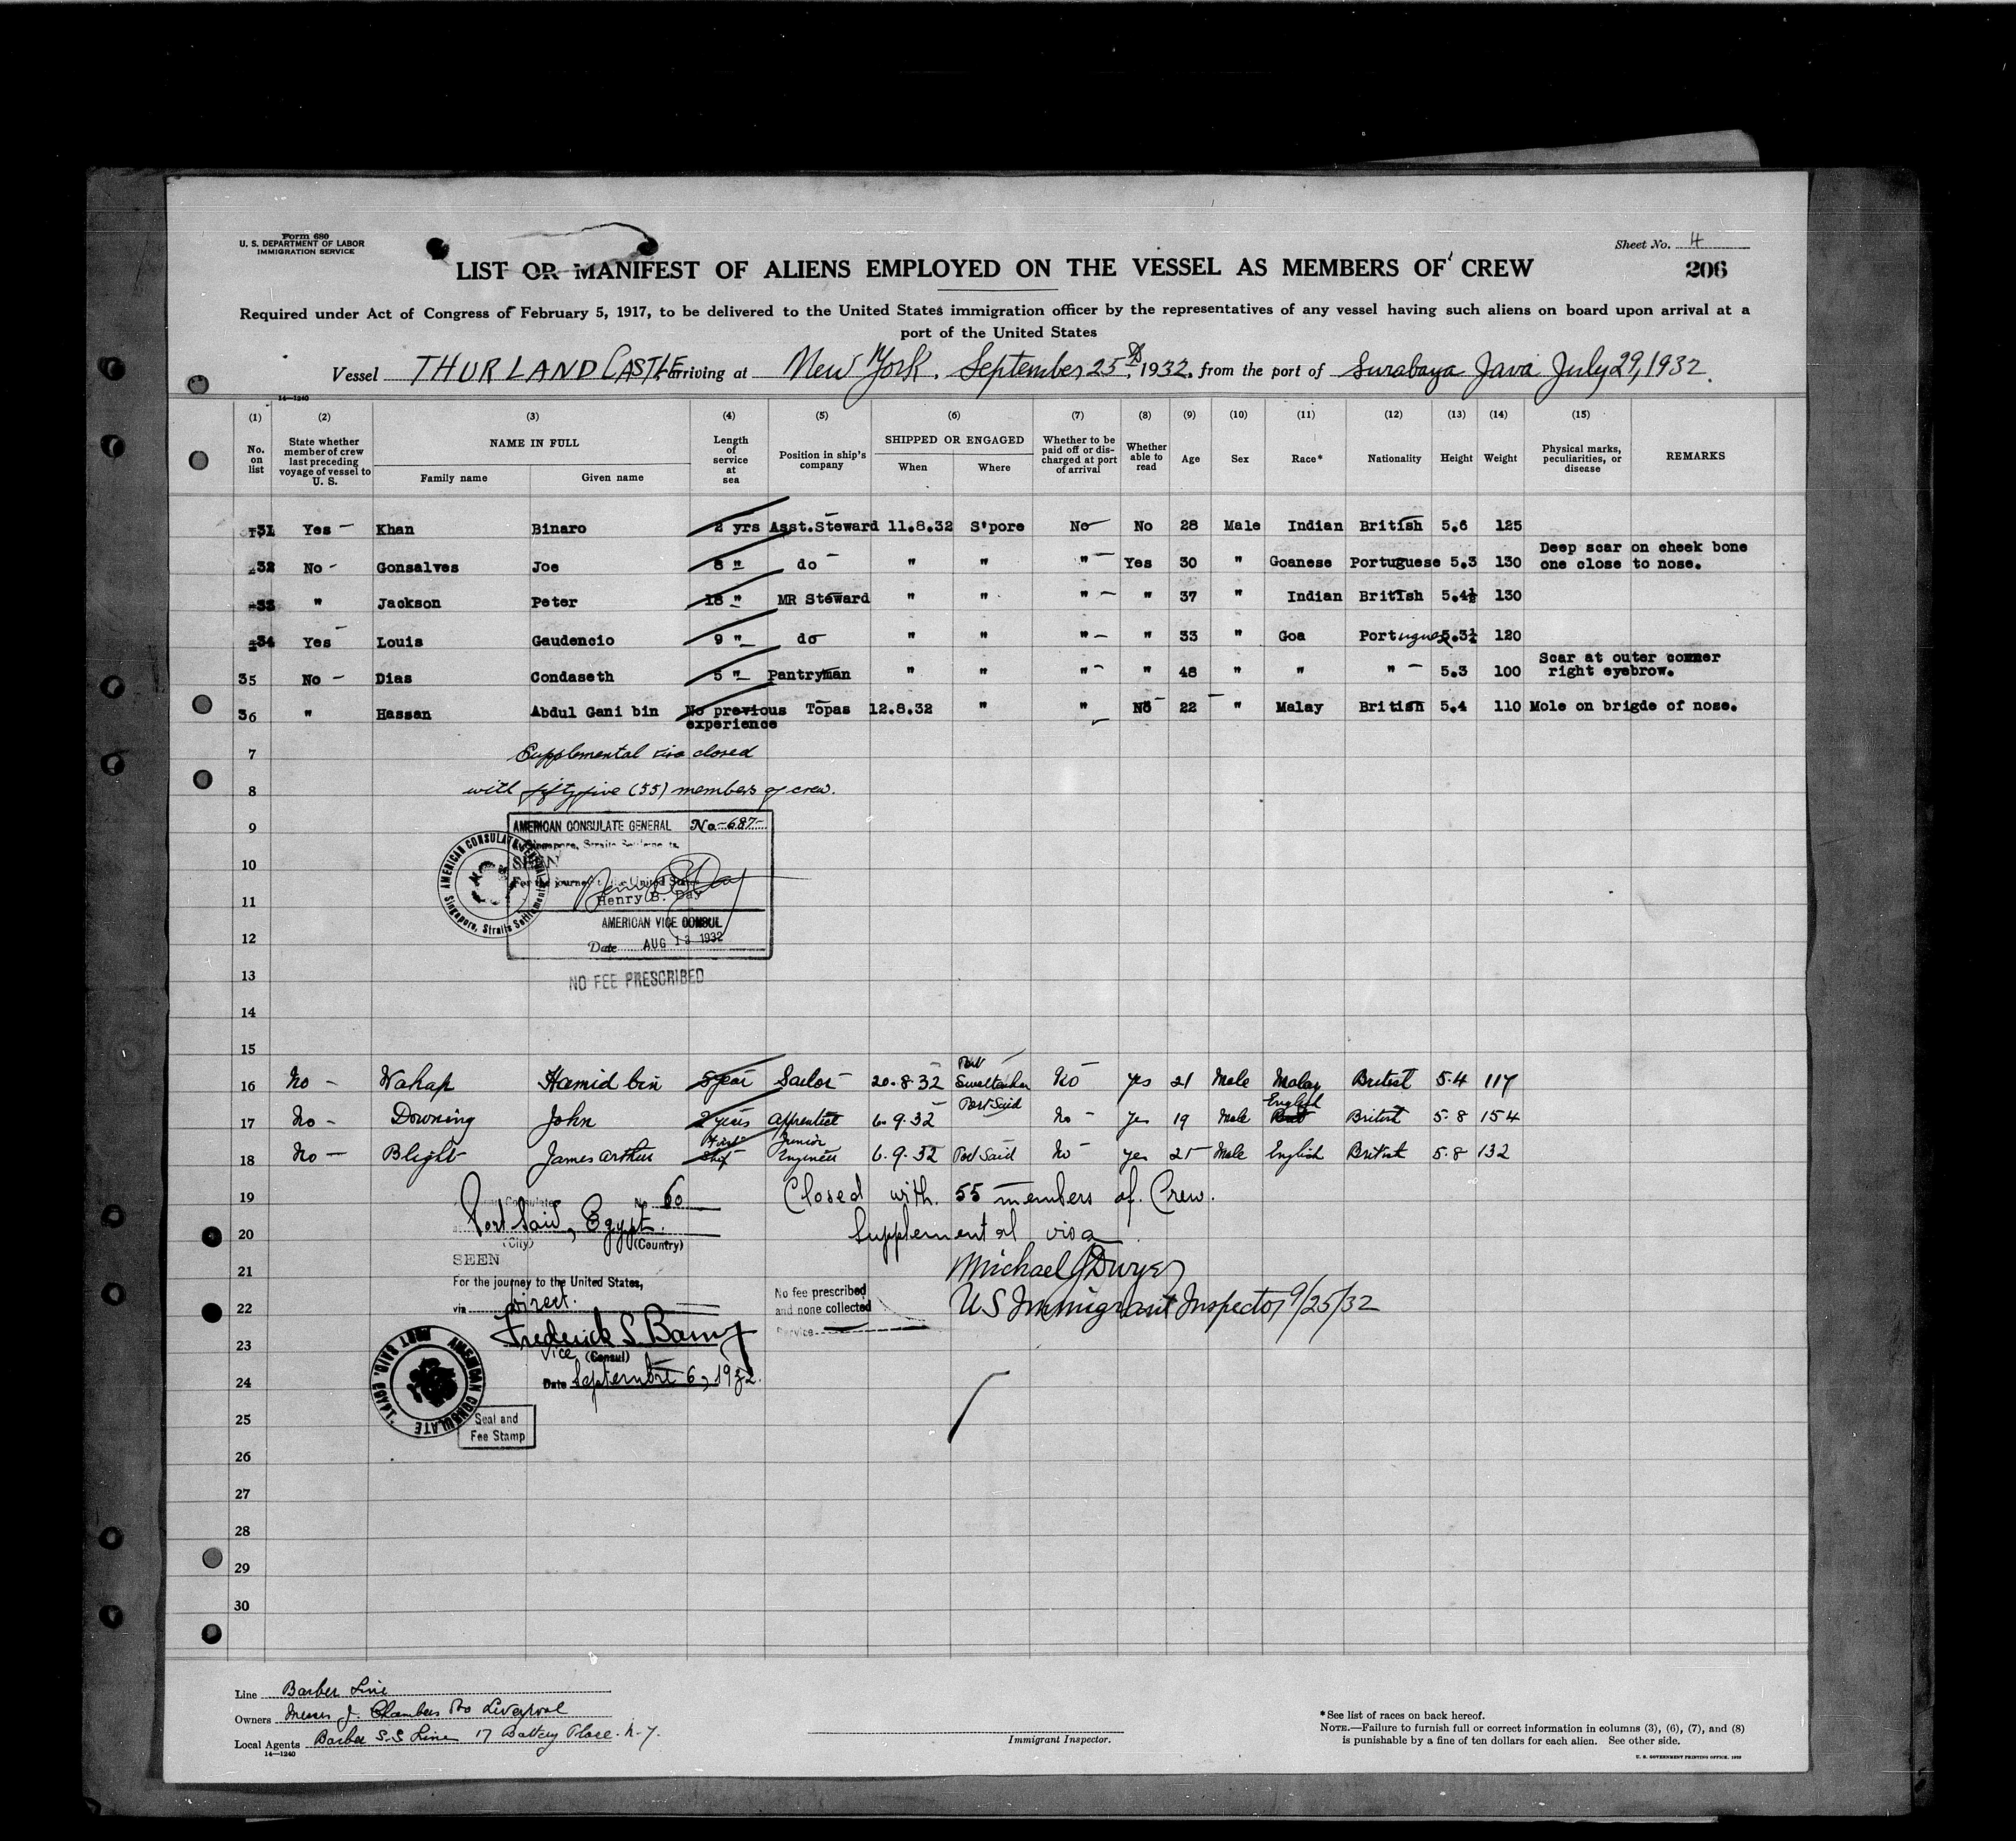 Form 680
U. S. DEPARTMENT OF LABOR
IMMIGRATION SERVICE
Sheet No. 4
206
LIST OR MANIFEST OF ALIENS EMPLOYED ON THE VESSEL AS MEMBERS OF CREW
Required under Act of Congress of February 5, 1917, to be delivered to the United States immigration officer by the representatives of any vessel having such aliens on board upon arrival at a
port of the United States
Vessel THURLAND CASTLE, arriving at New York, September 25th, 1932, from the port of Surabaya Java July 29, 1932.
14—1240
(1) (2) (3) (4) (5) (6) (7) (8) (9) (10) (11) (12) (13) (14) (15)
No. on list State whether member of crew last preceding voyage of vessel to U. S. NAME IN FULL Family name Given name Length of service at sea Position in ship's company SHIPPED OR ENGAGED When Where Whether to be paid off or discharged at port of arrival Whether able to read Age Sex Race* Nationality Height Weight Physical marks, peculiarities, or disease REMARKS
31 Yes — Khan Binaro 2 yrs Asst.Steward 11.8.32 S'pore No No 28 Male Indian British 5.6 125
32 No - Gonsalves Joe 8 " do " " " Yes 30 " Goanese Portuguese 5.3 130 Deep scar on cheek bone one close to nose.
33 " Jackson Peter 18 " MR Steward " " " " 37 " Indian British 5.4½ 130
34 Yes Louis Gaudencio 9 " do " " " " 33 " Goa Portuguese 5.3½ 120
35 No - Dias Condaseth 5 " Pantryman " " " " 48 " " " 5.3 100 Scar at outer conner right eyebrow.
36 " Hassan Abdul Gani bin No previous experience Topas 12.8.32 " " No 22 " Malay British 5.4 110 Mole on brigde of nose.
7 Supplemental visa closed
8 with fifty five (55) members of crew.
9 AMERICAN CONSULATE GENERAL No-687-
Singapore, Straits Settlements.
10 SEEN
For the journey to the United States
11 Henry B. Day
AMERICAN VICE CONSUL
12 Date AUG 13 1932
AMERICAN CONSULATE GENERAL Singapore, Straits Settlements
13 NO FEE PRESCRIBED
14
15
16 No - Wahap Hamid bin 5 year Sailor 20.8.32 Port Swettenham No yes 21 Male Malay British 5.4 117
17 No - Downing John 2 years Apprentice 6.9.32 Port Said No - yes 19 Male English British 5.8 154
18 No — Blight James Arthur First Ship Junior Engineer 6.9.32 Port Said No yes 25 Male English British 5.8 132
19 No 60 Closed with 55 members of Crew.
20 Port Said, Egypt. Supplemental visa
(City) (Country)
SEEN
21 For the journey to the United States, Michael J Dwyer
22 via Direct. No fee prescribed and none collected US Immigrant Inspector 9/25/32
Service
Frederick L. Barny
23 Vice (Consul)
24 Date September 6, 1932.
AMERICAN CONSULATE PORT SAID, EGYPT.
25 Seal and
Fee Stamp
26
27
28
29
30
Line Barber Line
Owners Messrs J. Chambers Co Liverpool
Local Agents Barber S.S Line 17 Battery Place. N.Y.
14—1240
Immigrant Inspector.
*See list of races on back hereof.
NOTE.—Failure to furnish full or correct information in columns (3), (6), (7), and (8)
is punishable by a fine of ten dollars for each alien. See other side.
U. S. GOVERNMENT PRINTING OFFICE. 1929